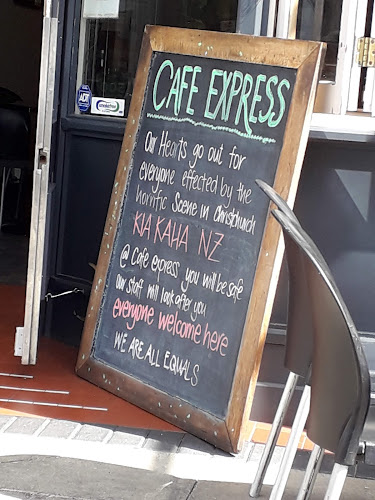 CAFE EXPRESS
Our Hearts go out for
everyone effected by the
horrific Scene in Christchurch
KIA KAHA NZ
@ Cafe express you will be safe
Our staff will look after you
everyone welcome here
WE ARE ALL EQUALS
ADT